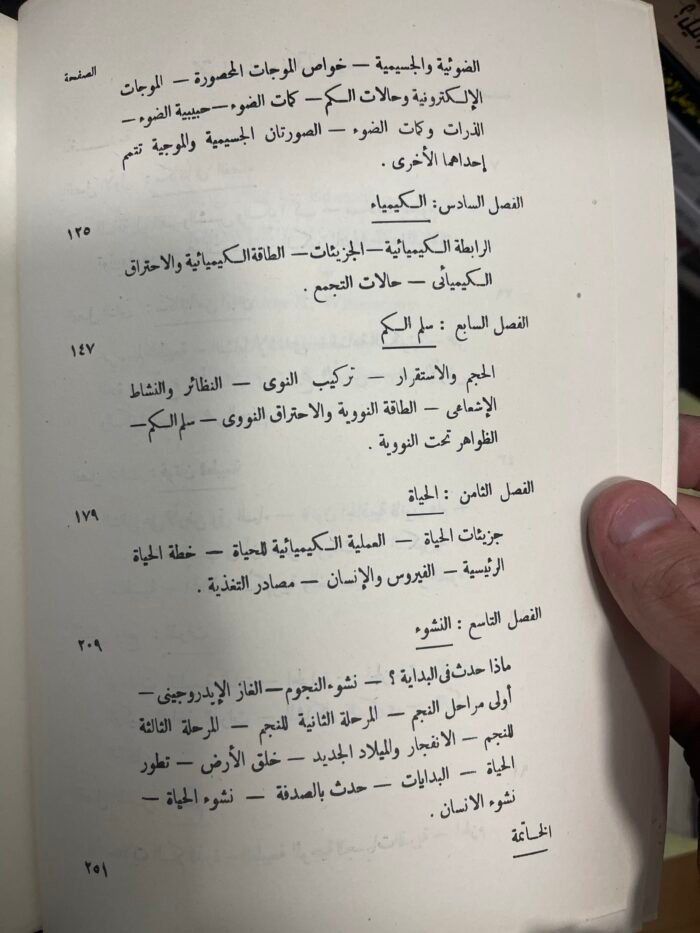 الصفحة
الضوئية والجسيمية — خواص الموجات المحصورة — الموجات
الإلكترونية وحالات الكم — كمات الضوء — حبيبية الضوء —
الذرات وكمات الضوء — الصورتان الجسيمية والموجية تتمم
إحداهما الأخرى .
الفصل السادس : الكيمياء
١٢٥
الرابطة الكيميائية — الجزيئات — الطاقة الكيميائية والاحتراق
الكيميائى — حالات التجمع .
الفصل السابع : سلم الكم
١٤٧
الحجم والاستقرار — تركيب النوى — النظائر والنشاط
الإشعاعى — الطاقة النووية والاحتراق النووى — سلم الكم —
الظواهر تحت النووية .
الفصل الثامن : الحياة
١٧٩
جزيئات الحياة — العملية الكيميائية للحياة — خطة الحياة
الرئيسية — الفيروس والإنسان — مصادر التغذية .
الفصل التاسع : النشوء
٢٠٩
ماذا حدث فى البداية ؟ — نشوء النجوم — الغاز الإيدروجينى —
أولى مراحل النجم — المرحلة الثانية للنجم — المرحلة الثالثة
للنجم — الانفجار والميلاد الجديد — خلق الأرض — تطور
الحياة — البدايات — حدث بالصدفة — نشوء الحياة —
نشوء الانسان .
الخاتمة
٢٥١